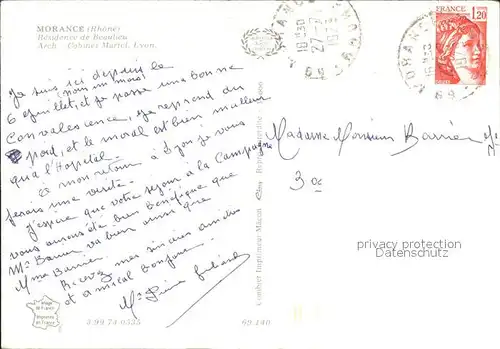 MORANCE (Rhône)
Résidence de Beaulieu
Arch. Cabinet Martel, Lyon.
FRANCE
1,20
MORANCE
18H30
27-7
1978
69
Je suis ici depuis le
pour un mois
6 Juillet, et je passe une bonne
Convalescence, je reprend du
poid, et le moral est bien meilleur
qua l'Hopital.
à mon retour à Lyon je vous
ferais une visite.
J'espère que votre séjour à la Campagne
vous aura été bien Bénéfique que
Mr va bien ainsi que
Mme
Recevez mes sincères amitiés
et amical Bonjour.
Mr Pierre
Madame Monsieur
Combier Imprimeur Macon
3.99.74.0535
69.140
privacy protection
Datenschutz